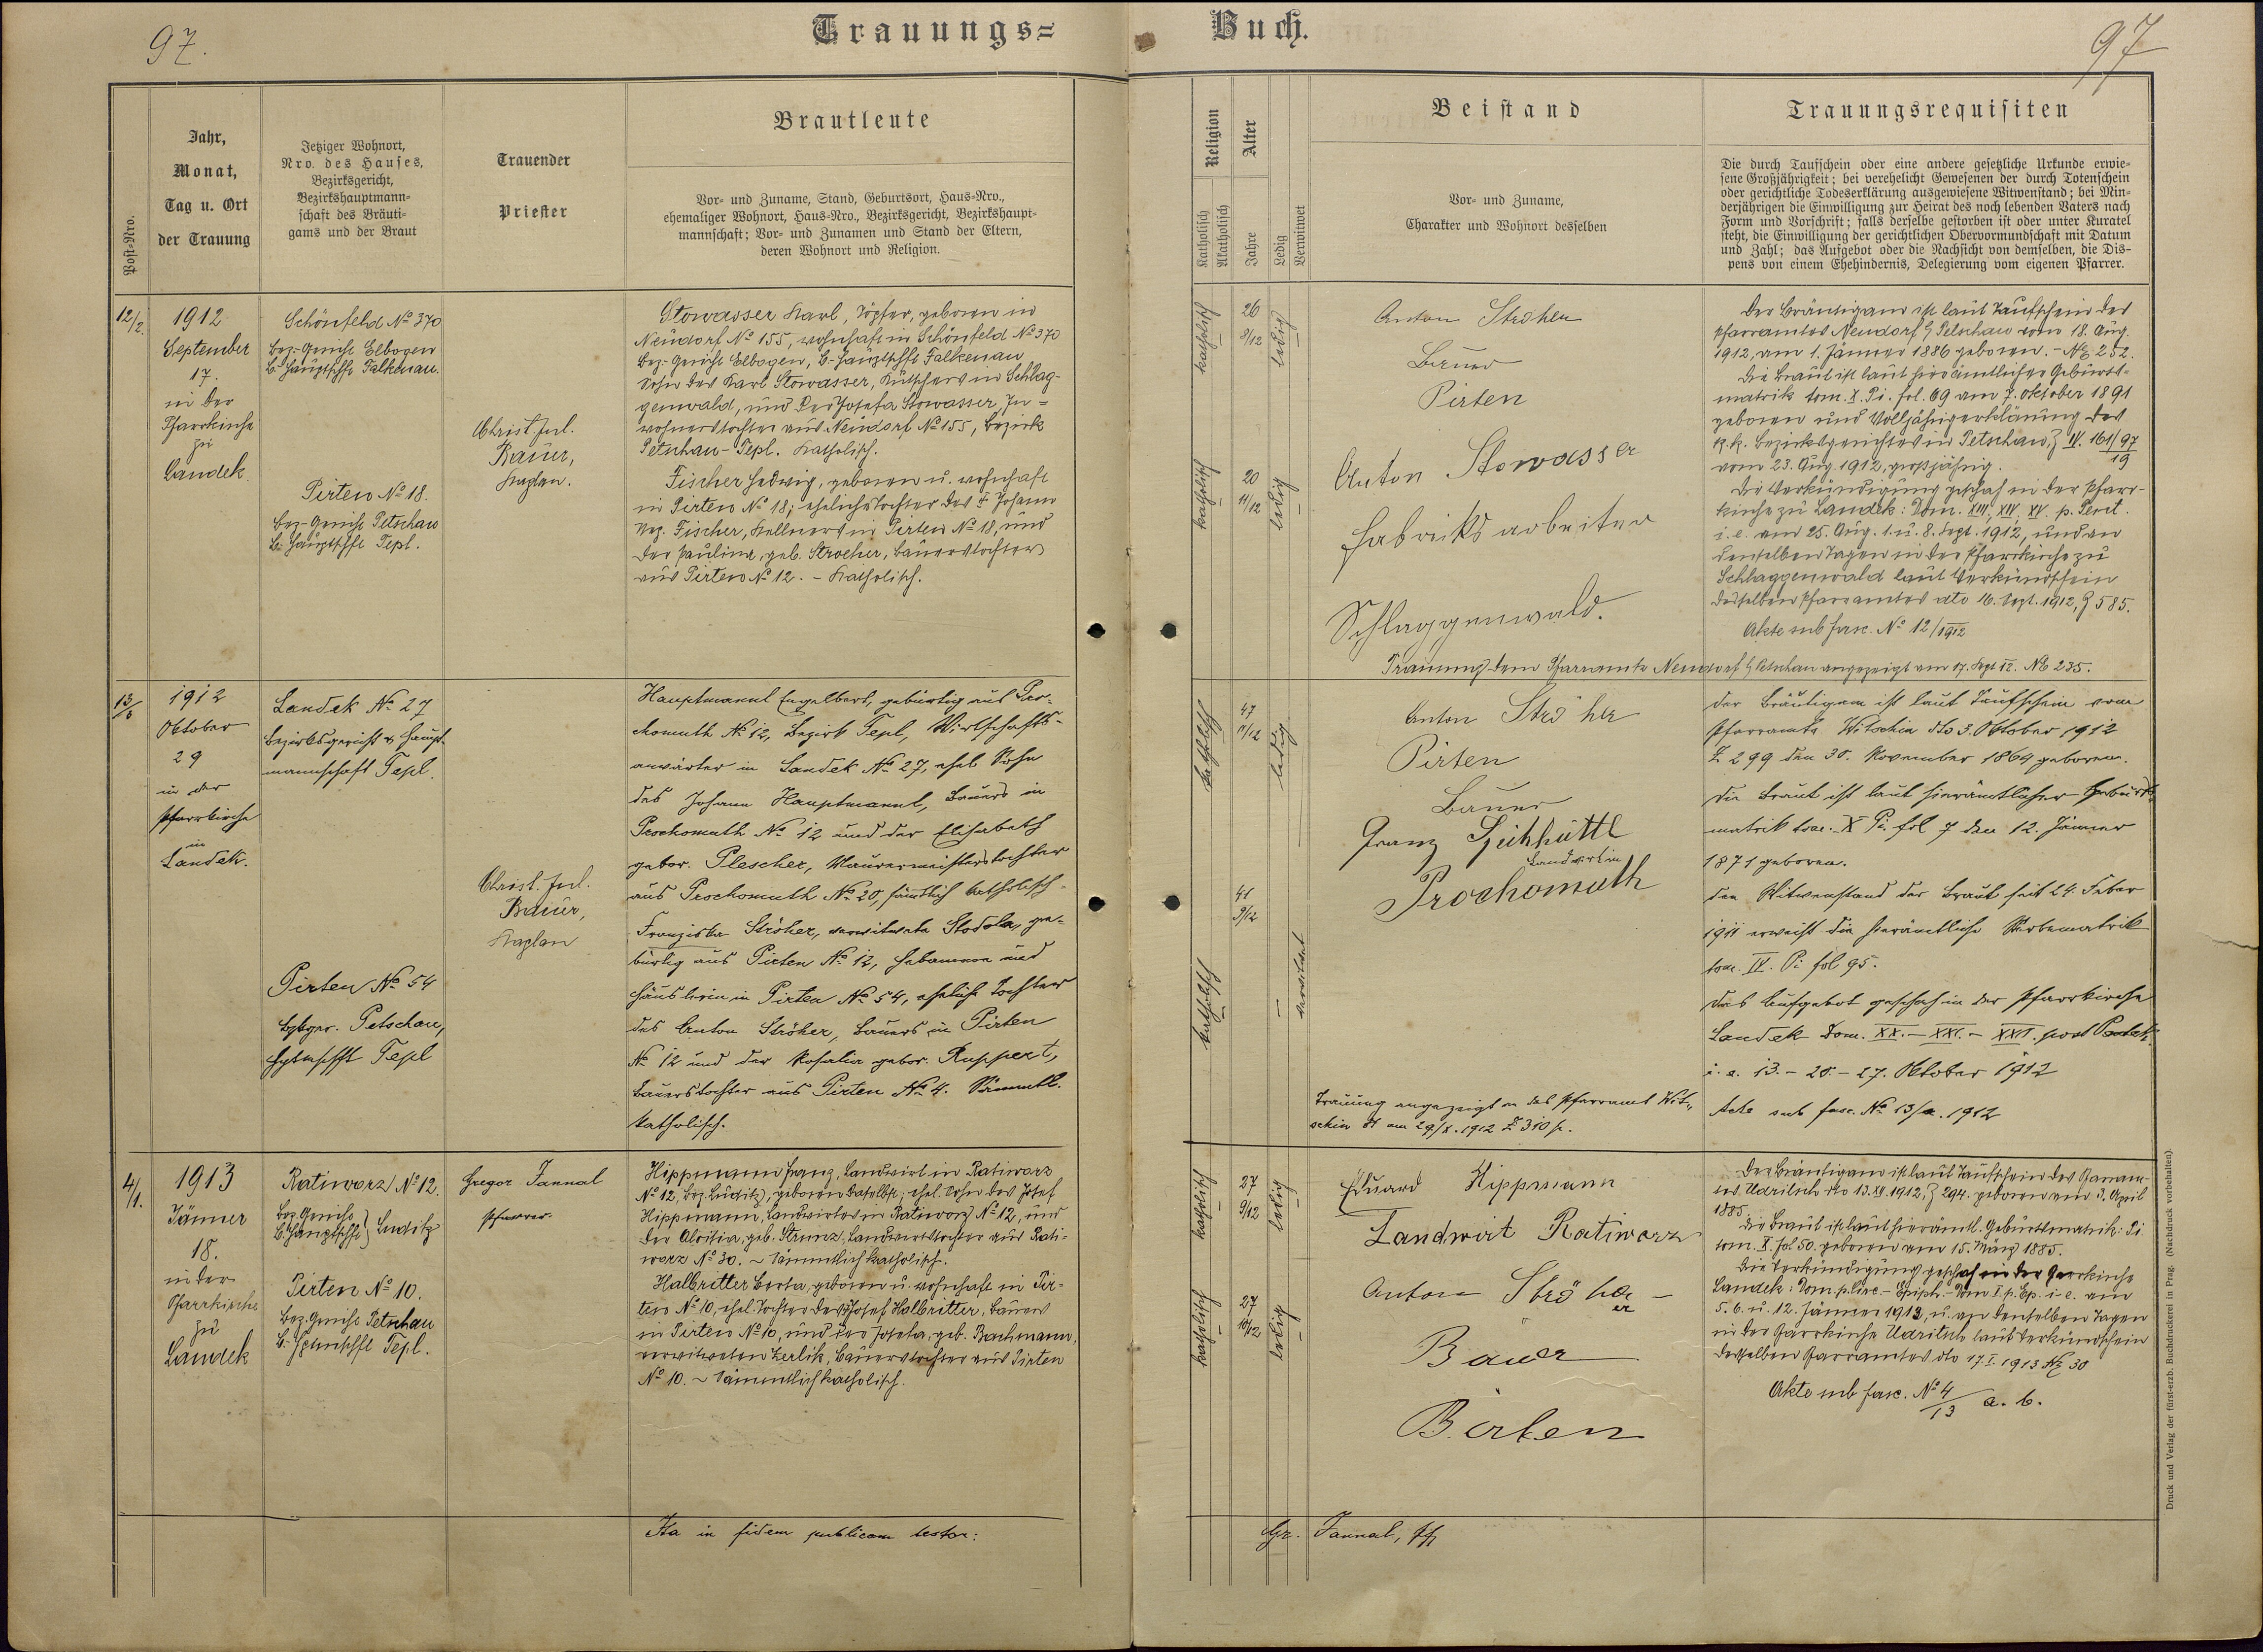 97.
Trauungs=
Buch.
97
Post-Nro.
Jahr,
Monat,
Tag u. Ort
der Trauung
Jetziger Wohnort,
Nro. des Hauses,
Bezirksgericht,
Bezirkshauptmann-
schaft des Bräuti-
gams und der Braut
Trauender
Priester
Brautleute
Vor- und Zuname, Stand, Geburtsort, Haus-Nro.,
ehemaliger Wohnort, Haus-Nro., Bezirksgericht, Bezirkshaupt-
mannschaft; Vor- und Zunamen und Stand der Eltern,
deren Wohnort und Religion.
Religion
Katholisch
Akatholisch
Alter
Jahre
Ledig
Verwitwet
Beistand
Vor- und Zuname,
Charakter und Wohnort desselben
Trauungsrequisiten
Die durch Taufschein oder eine andere gesetzliche Urkunde erwie-
sene Großjährigkeit; bei verehelicht Gewesenen der durch Totenschein
oder gerichtliche Todeserklärung ausgewiesene Witwenstand; bei Min-
derjährigen die Einwilligung zur Heirat des noch lebenden Vaters nach
Form und Vorschrift; falls derselbe gestorben ist oder unter Kuratel
steht, die Einwilligung der gerichtlichen Obervormundschaft mit Datum
und Zahl; das Aufgebot oder die Nachsicht von demselben, die Dis-
pens von einem Ehehindernis, Delegierung vom eigenen Pfarrer.
12/2.
1912
September
17.
in der
Pfarrkirche
zu
Landek
Schönfeld No 370
Bez.-Gericht Elbogen
B. Hauptschft Falkenau.
Pirten No 18.
Bez-Gericht Petschau
B. Hauptschft Tepl.
Christ. Jul.
Bauer,
Kaplan.
Stowasser Karl, Töpfer, geboren in
Neudorf No 155, wohnhaft in Schönfeld No 370
Bez.-Gericht Elbogen, B.-Hauptschft Falkenau
Sohn des Karl Stowasser, Kutschers in Schlag-
genwald, und der Josefa Stowasser, In-
wohnerstochter aus Neudorf No 155, Bezirk
Petschau-Tepl. Katholisch.
Fischer Hedwig, geboren u. wohnhaft
in Pirten No 18; eheliche Tochter des † Johann
Fischer, Kellners in Pirten No 18, und
der Pauline, geb. Stroeher, Bauerstochter
aus Pirten No 12. - Katholisch.
katholisch
26
8/12
ledig
katholisch
20
11/12
ledig
Anton Ströher
Bauer
Pirten
Anton Stowasser
Fabriksarbeiter
Schlaggenwald.
Der Bräutigam ist laut Taufschein des
Pfarramtes Neudorf b/ Petschau vom 18. Aug.
1912, am 1. Jänner 1886 geboren. - No 252.
Die Braut ist laut hierämtlicher Geburts-
matrik tom. X. Pi. fol. 69 am 7. Oktober 1891
geboren und Volljährigerklärung des
k.k. Bezirksgerichtes in Petschau, Z IV. 161/97
19
vom 23. Aug. 1912, großjährig.
Die Verkündigung geschah in der Pfarr-
kirche zu Landek: Dom. XIII, XIV, XV. p. Pent.
i. e. am 25. Aug. 1. u. 8. Sept. 1912, und an
denselben Tagen in der Pfarrkirche zu
Schlaggenwald laut Verkündschein
desselben Pfarramtes dto 16. Sept. 1912, Z 585.
Akte sub fasc. No 12/1912
Trauung dem Pfarramte Neudorf b/ Petschau angezeigt am 17. Sept 12. No 235.
1912
Oktober
29
in der
Pfarrkirche
in
Landek.
Landek No 27
Bezirksgericht & Haupt-
mannschaft Tepl.
Pirten No 54
Bzkger. Petschau,
Hptmschft Tepl
Christ. Jul.
Bauer,
Kaplan
Hauptmannl Engelbert, gebürtig aus Pro-
chomuth No 12, Bezirk Tepl, Wirtschafts-
anwärter in Landek No 27, ehel. Sohn
des Johann Hauptmannl, Bauers in
Prochomuth No 12 und der Elisabeth
gebor. Plescher, Maurermeisterstochter
aus Prochomuth No 20, sämtlich katholisch.
Franziska Ströher, verwitwete Stodola, ge-
bürtig aus Pirten No 12, Hebamme und
Häuslerin in Pirten No 54, eheliche Tochter
des Anton Ströher, Bauers in Pirten
No 12 und der Rosalia gebor. Ruppert,
Bauerstochter aus Pirten No 4. Sämmtl.
katholisch.
katholisch
47
11/12
ledig
41
9/12
katholisch
verwitwet
Anton Ströher
Pirten
Bauer
Franz
Landwirt in
Prochomuth
Trauung angezeigt an das Pfarramt Wit-
schin am 29/X. 1912 Z 310
Der Bräutigam ist laut Taufschein vom
Pfarramte Witschin dto 3. Oktober 1912
Z 299 den 30. November 1864 geboren.
Die Braut ist laut hierämtlicher Geburts-
matrik tom. X Pi. fol 7 den 12. Jänner
1871 geboren.
Den Witwenstand der Braut seit 24. Feber
1911 erweist die hierämtliche Sterbematrik
tom. IV. Pi fol 95.
Das Aufgebot geschah in der Pfarrkirche
Landek Dom. XX. - XXI. - XXII. post Pentek.
i. e. 13. - 20. - 27. Oktober 1912
Acte sub fasc. No 13/a. 1912
4/1.
1913
Jänner
18.
in der
Pfarrkirche
zu
Landek
Ratiworz No 12.
Bez. Gericht
B. Hauptschft } Luditz
Pirten No 10.
Bez. Gericht Petschau
B. Hptmschft Tepl.
Gregor Jannal
Pfarrer
Hippmann Franz, Landwirt in Ratiworz
No 12, Bez. Luditz, geboren daselbst; ehel. Sohn des Josef
Hippmann, Landwirtes in Ratiworz No 12, und
der Aloisia, geb. Strunz, Landwirtstochter aus Rati-
worz No 30. ~ Sämmtlich katholisch.
Halbritter Berta, geboren u. wohnhaft in Pir-
ten No 10, ehel. Tochter des Josef Halbritter, Bauers
in Pirten No 10, und der Josefa, geb. Bachmann,
verwitweten Zerlik, Bauerstochter aus Pirten
No 10. ~ Sämmtlich katholisch.
katholisch
27
9/12
ledig
katholisch
27
10/12
ledig
Eduard Hippmann
Landwirt Ratiworz
Anton Ströher
Bauer
Birten
Der Bräutigam ist laut Taufschein des Pfarram-
tes Udritsch dto 13. XI. 1912, Z 294. geboren am 3. April
1885.
Die Braut ist laut hierämtl. Geburtsmatrik: Pi.
tom. X. fol 50. geboren am 15. März 1885.
Die Verkündigung geschah in der Pfarrkirche
Landek: Dom p. Circ. - Epiph. - Dom I p. Ep. i. e. am
5. 6. u. 12. Jänner 1913, u. an denselben Tagen
in der Pfarrkirche Udritsch laut Verkündschein
desselben Pfarramtes dto 17. I. 1913 No 30
Akte sub fasc. No 4/13 a. b.
Ita in fidem publicam testor:
Gr. Jannal, Pf
Druck und Verlag der fürst-erzb. Buchdruckerei in Prag. (Nachdruck vorbehalten).